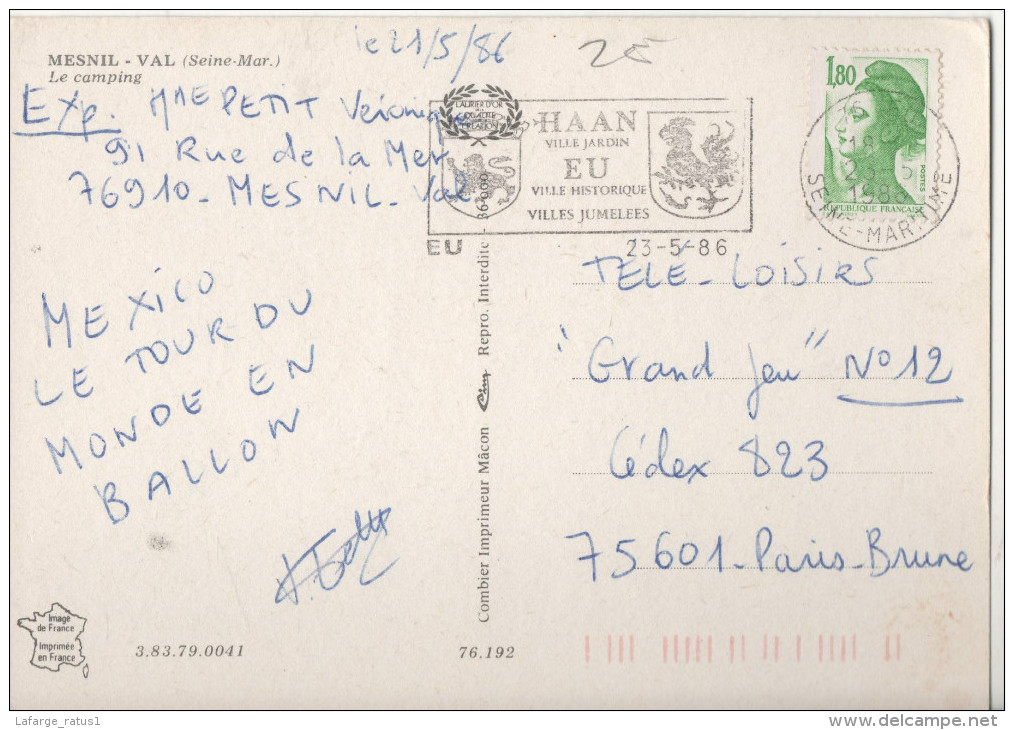 MESNIL - VAL (Seine-Mar.)
Le camping
le 21/5/86
Exp. Mme PETIT Véronique
91 Rue de la Mer
76910 - MESNIL - Val
LAURIER D'OR
DE LA
QUALITE
CREATION
HAAN
VILLE JARDIN
EU
VILLE HISTORIQUE
VILLES JUMELEES
EU
23-5-86
1,80
POSTES
REPUBLIQUE FRANÇAISE
1986
SEINE-MARITIME
MEXICO
LE TOUR DU
MONDE EN
BALLON
Combier Imprimeur Mâcon Cim Repro. Interdite -
TELE - LOISIRS
"Grand Jeu" N° 12
Cédex 823
75601 - Paris - Brune
Image
de France
Imprimée
en France
3.83.79.0041
76.192
Lafarge_ratus1
delcampe.net